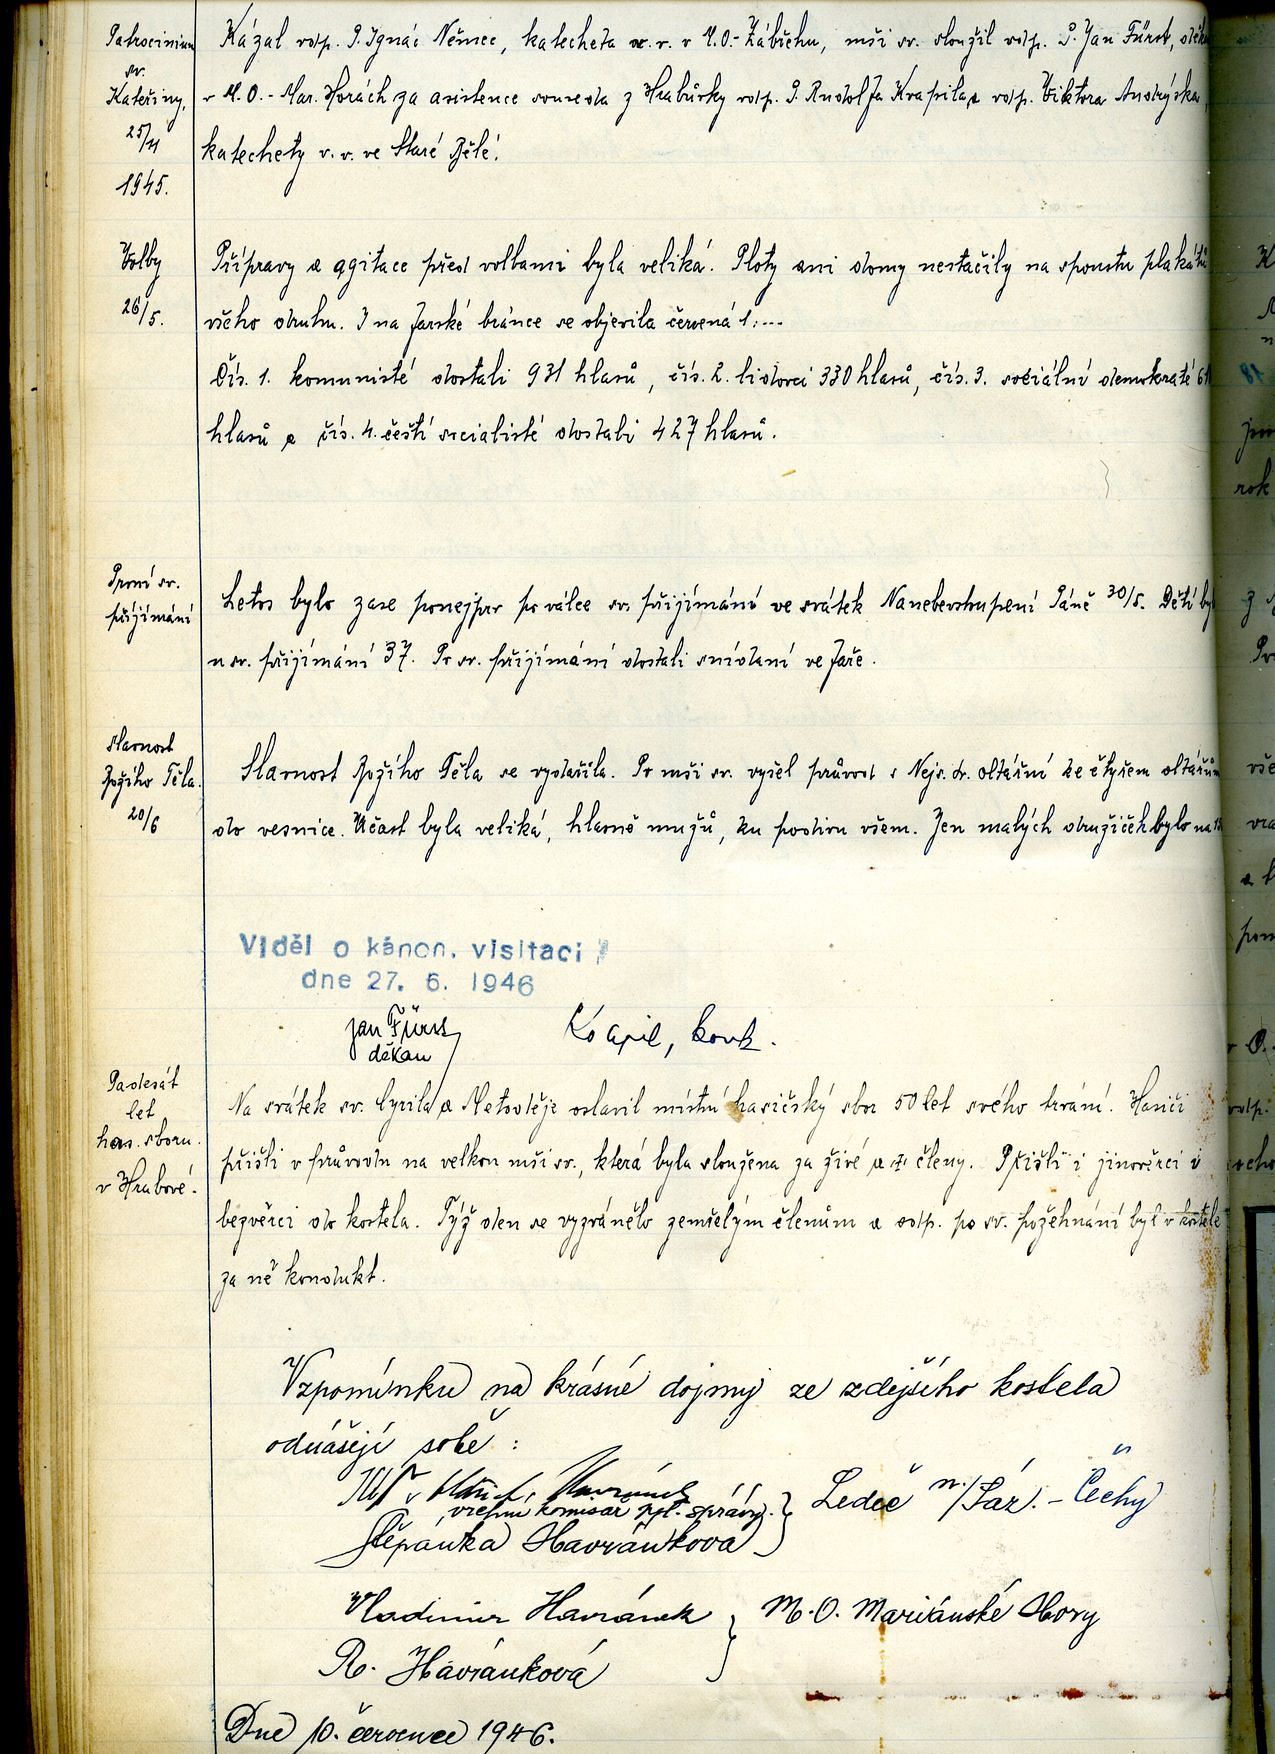 Patrocinium
sv.
Kateřiny,
25/11
1945.
Kázal vdp. P. Ignác Němec, katecheta v. v. v M.O.-Zábřehu, mši sv. sloužil vdp. P. Jan Fürst, děk
v M.O.-Mar. Horách za asistence souseda z Hrabůvky vdp. P. Rudolfa Krapila a vdp. Viktora Andrýska,
katechety v. v. ve Staré Bělé.
Volby
26/5.
Přípravy a agitace před volbami byla veliká. Ploty ani domy nestačily na spoustu plakátů
všeho druhu. I na farské bránce se objevila červená 1....
Čís. 1. komunisté dostali 931 hlasů, čís. 2. lidovci 330 hlasů, čís. 3. sociální demokraté 61
hlasů a čís. 4. čeští socialisté dostali 427 hlasů.
První sv.
přijímání
Letos bylo zase ponejprv po válce sv. přijímání ve svátek Nanebevstupení Páně 30/5. Dětí by
u sv. přijímání 37. Po sv. přijímání dostali snídani ve faře.
Slavnost
Božího Těla.
20/6
Slavnost Božího Těla se vydařila. Po mši sv. vyšel průvod s Nejs. sv. oltářní ke čtyřem oltářům
do vesnice. Účast byla veliká, hlavně mužů, ku podivu všem. Jen malých družiček bylo
Viděl o kánon. visitaci
dne 27. 6. 1946
Jan Fürst
děkan
Padesát
let
has. sboru.
v Hrabové.
Na svátek sv. Cyrila a Metoděje oslavil místní hasičský sbor 50 let svého trvání. Hasiči
přišli v průvodu na velkou mši sv., která byla sloužena za živé a † členy. Přišli i jinověrci i
bezvěrci do kostela. Týž den se vyzvánělo zemřelým členům a odp. po sv. požehnání byl v kostele
za ně kondukt.
Vzpomínku na krásné dojmy ze zdejšího kostela
odnášejí sobě:
Havránek
vrchní komisař správy
Štěpánka Havránková
Ledeč n./Sáz. - Čechy
Vladimír Havránek
M.O. Mariánské Hory
R. Havránková
Dne 10. července 1946.